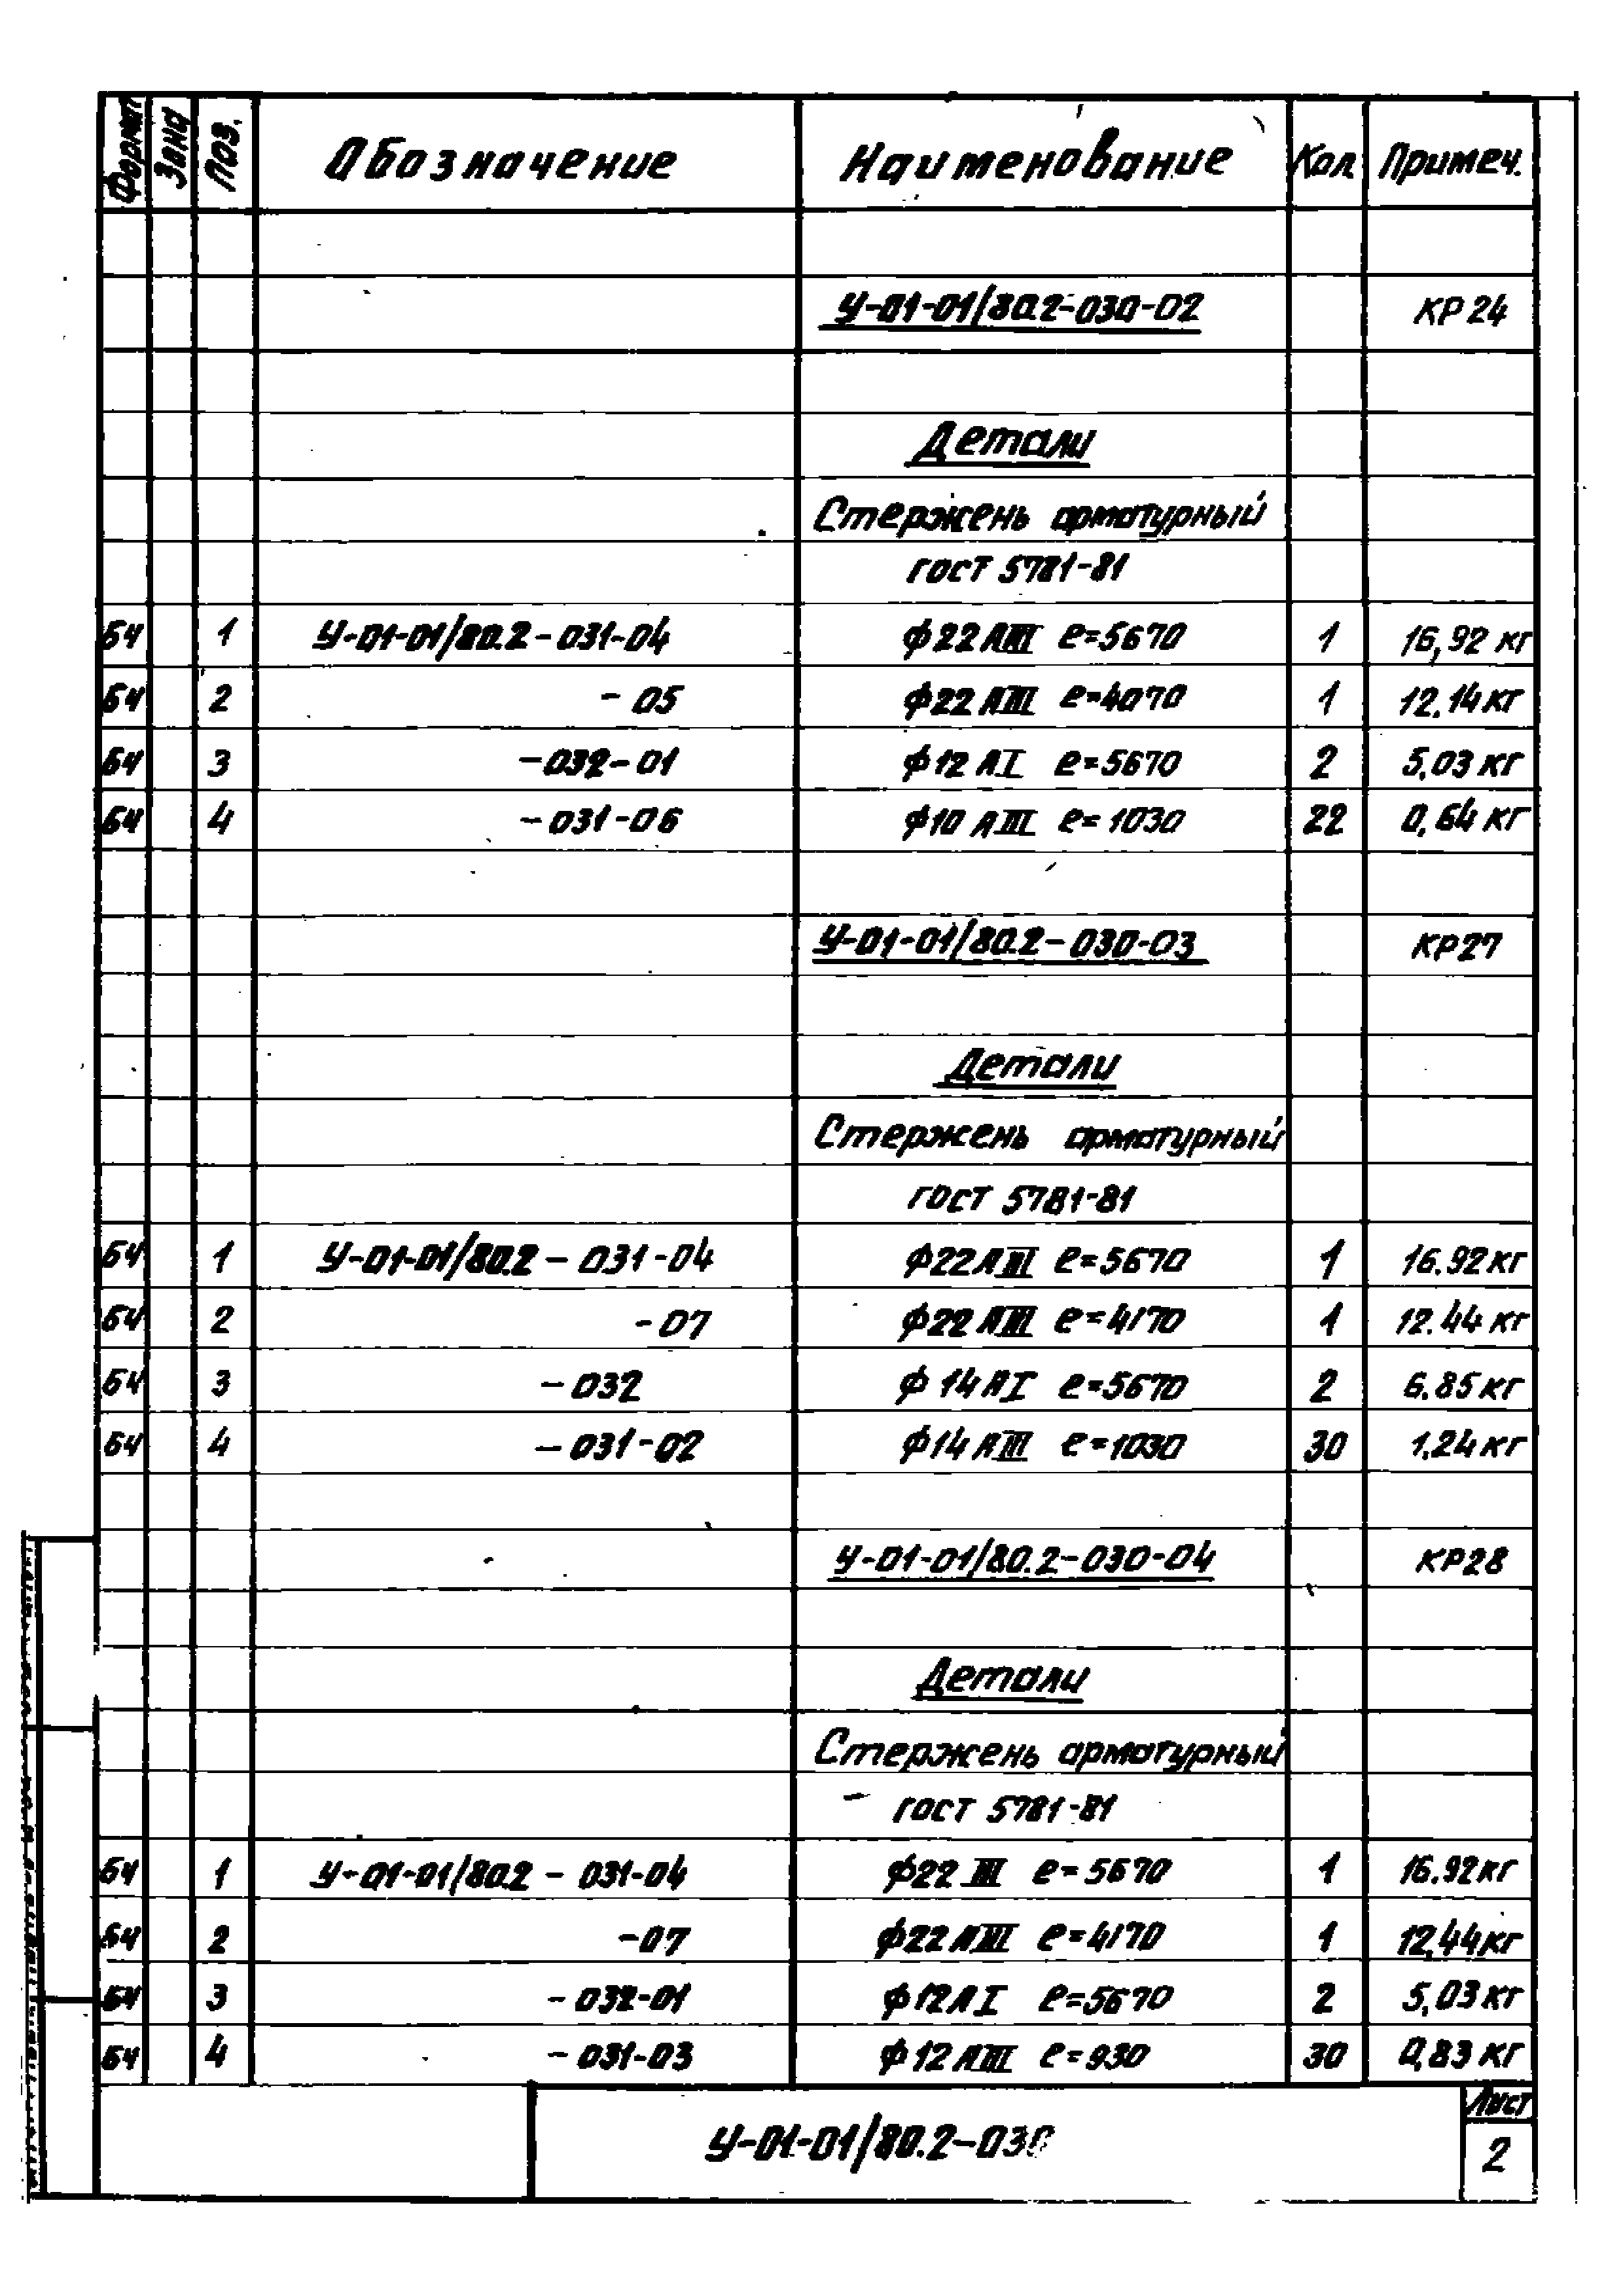 Формат Зона Поз. Обозначение Наименование Кол. Примеч.
У-01-01/80.2-030-02 КР 24
Детали
Стержень арматурный
ГОСТ 5781-81
БЧ 1 У-01-01/80.2-031-04 ф22 АIII ℓ=5670 1 16,92 кг
БЧ 2 -05 ф22 АIII ℓ=4070 1 12.14 кг
БЧ 3 -032-01 ф12 АI ℓ=5670 2 5,03 кг
БЧ 4 -031-06 ф10 АIII ℓ=1030 22 0,64 кг
У-01-01/80.2-030-03 КР27
Детали
Стержень арматурный
ГОСТ 5781-81
БЧ 1 У-01-01/80.2-031-04 ф22 АIII ℓ=5670 1 16.92 кг
БЧ 2 -07 ф22 АIII ℓ=4170 1 12.44 кг
БЧ 3 -032 ф 14 АI ℓ=5670 2 6.85 кг
БЧ 4 -031-02 ф14 АIII ℓ=1030 30 1.24 кг
У-01-01/80.2-030-04 КР28
Детали
Стержень арматурный
ГОСТ 5781-81
БЧ 1 У-01-01/80.2-031-04 ф22 III ℓ=5670 1 16.92 кг
БЧ 2 -07 ф22 АIII ℓ=4170 1 12,44 кг
БЧ 3 -032-01 ф12 АI ℓ=5670 2 5,03 кг
БЧ 4 -031-03 ф12 АIII ℓ=930 30 0,83 кг
У-01-01/80.2-030
Лист
2